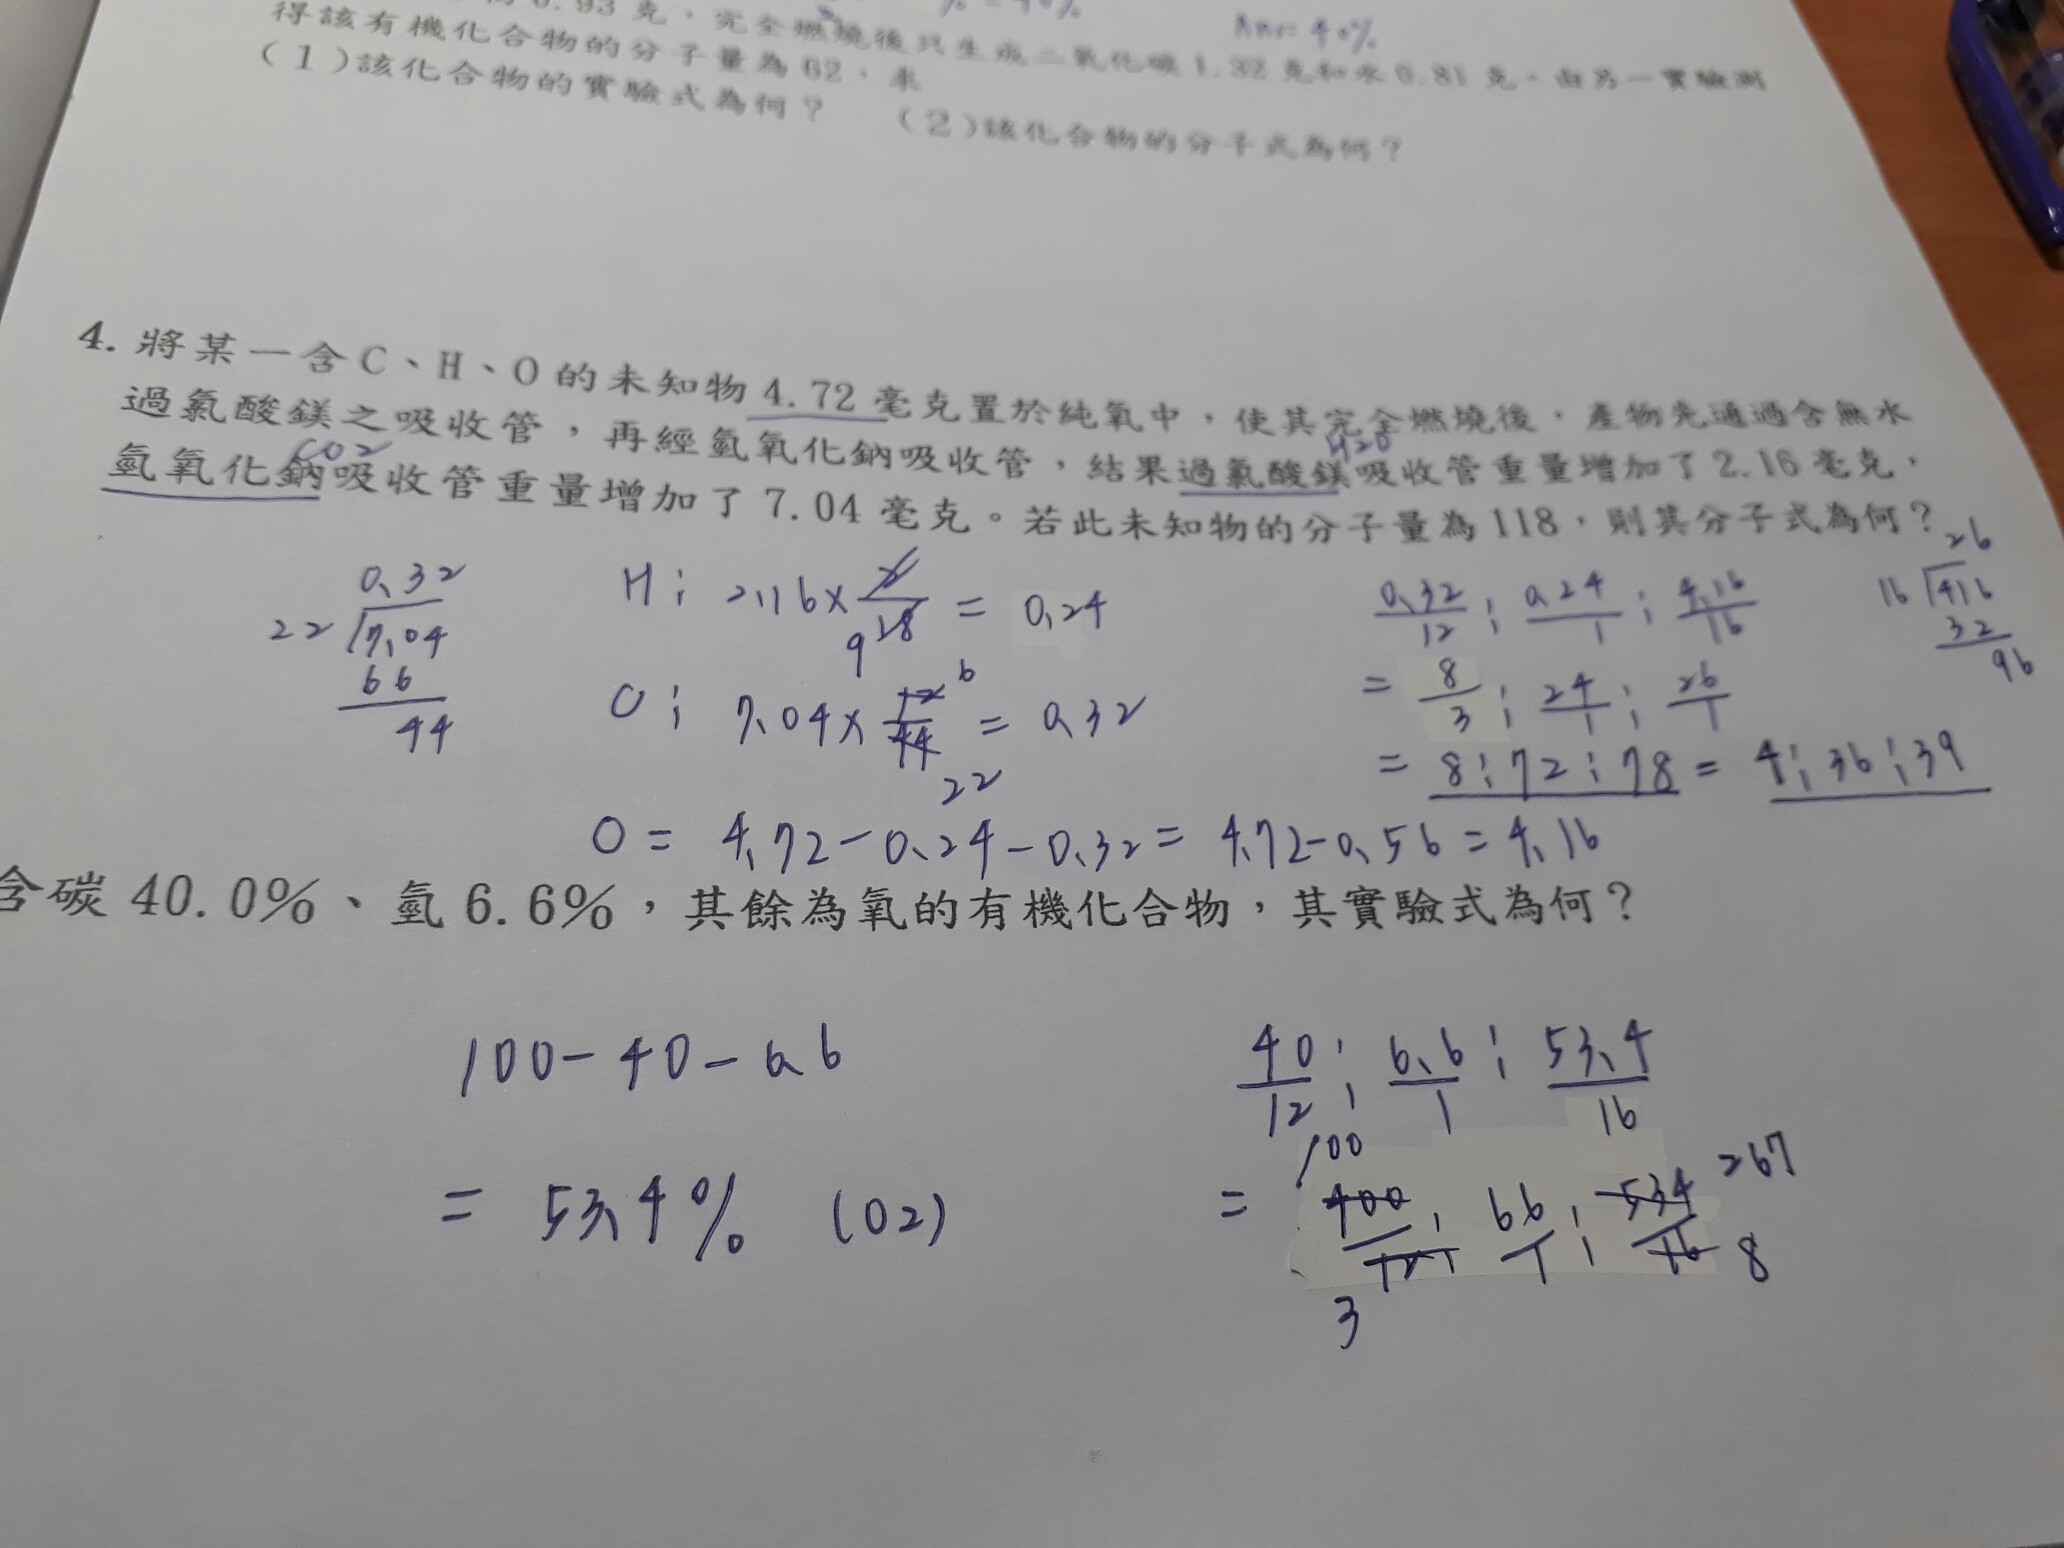 0.93克，完全燃燒後只生成二氧化碳1.32克和水0.81克。由另一實驗測
Ans=40%
得該有機化合物的分子量為62，求
(1)該化合物的實驗式為何？ (2)該化合物的分子式為何？
4. 將某一含C、H、O的未知物4.72毫克置於純氧中，使其完全燃燒後，產物先通過含無水
過氯酸鎂之吸收管，再經氫氧化鈉吸收管，結果過氯酸鎂吸收管重量增加了2.16毫克，
CO2 H2O
氫氧化鈉吸收管重量增加了7.04毫克。若此未知物的分子量為118，則其分子式為何？
0.32
22 7.04
66
44
H: 2.16×2/18 = 0.24
9
C: 7.04×12/44 = 0.32
6
22
O = 4.72-0.24-0.32= 4.72-0.56=4.16
0.32/12 : 0.24/1 : 4.16/16
= 8/3 : 24/1 : 26/1
= 8:72:78 = 4:36:39
26
16 416
32
96
含碳40.0%、氫6.6%，其餘為氧的有機化合物，其實驗式為何？
100-40-6.6
= 53.4% (O2)
40/12 : 6.6/1 : 53.4/16
100 267
= 400/12 : 66/1 : 534/16
3 8